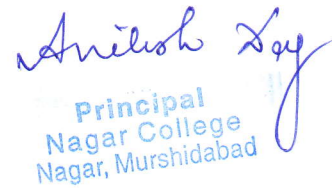 Anilesh Dey
Principal
Nagar College
Nagar, Murshidabad